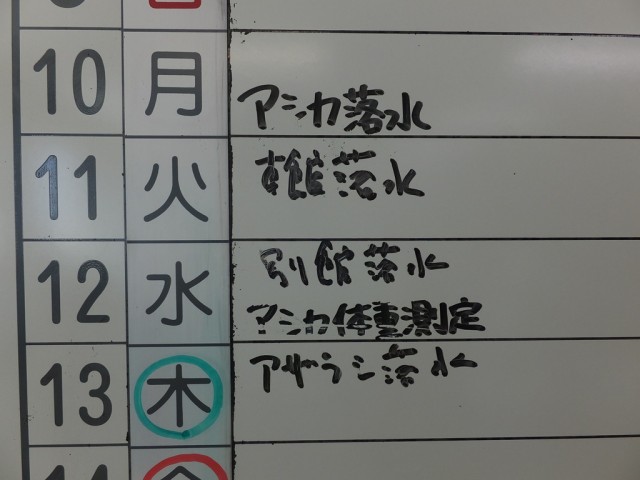 10 月 アシカ落水
11 火 本館落水
12 水 別館落水
アシカ体重測定
13 木 アザラシ落水